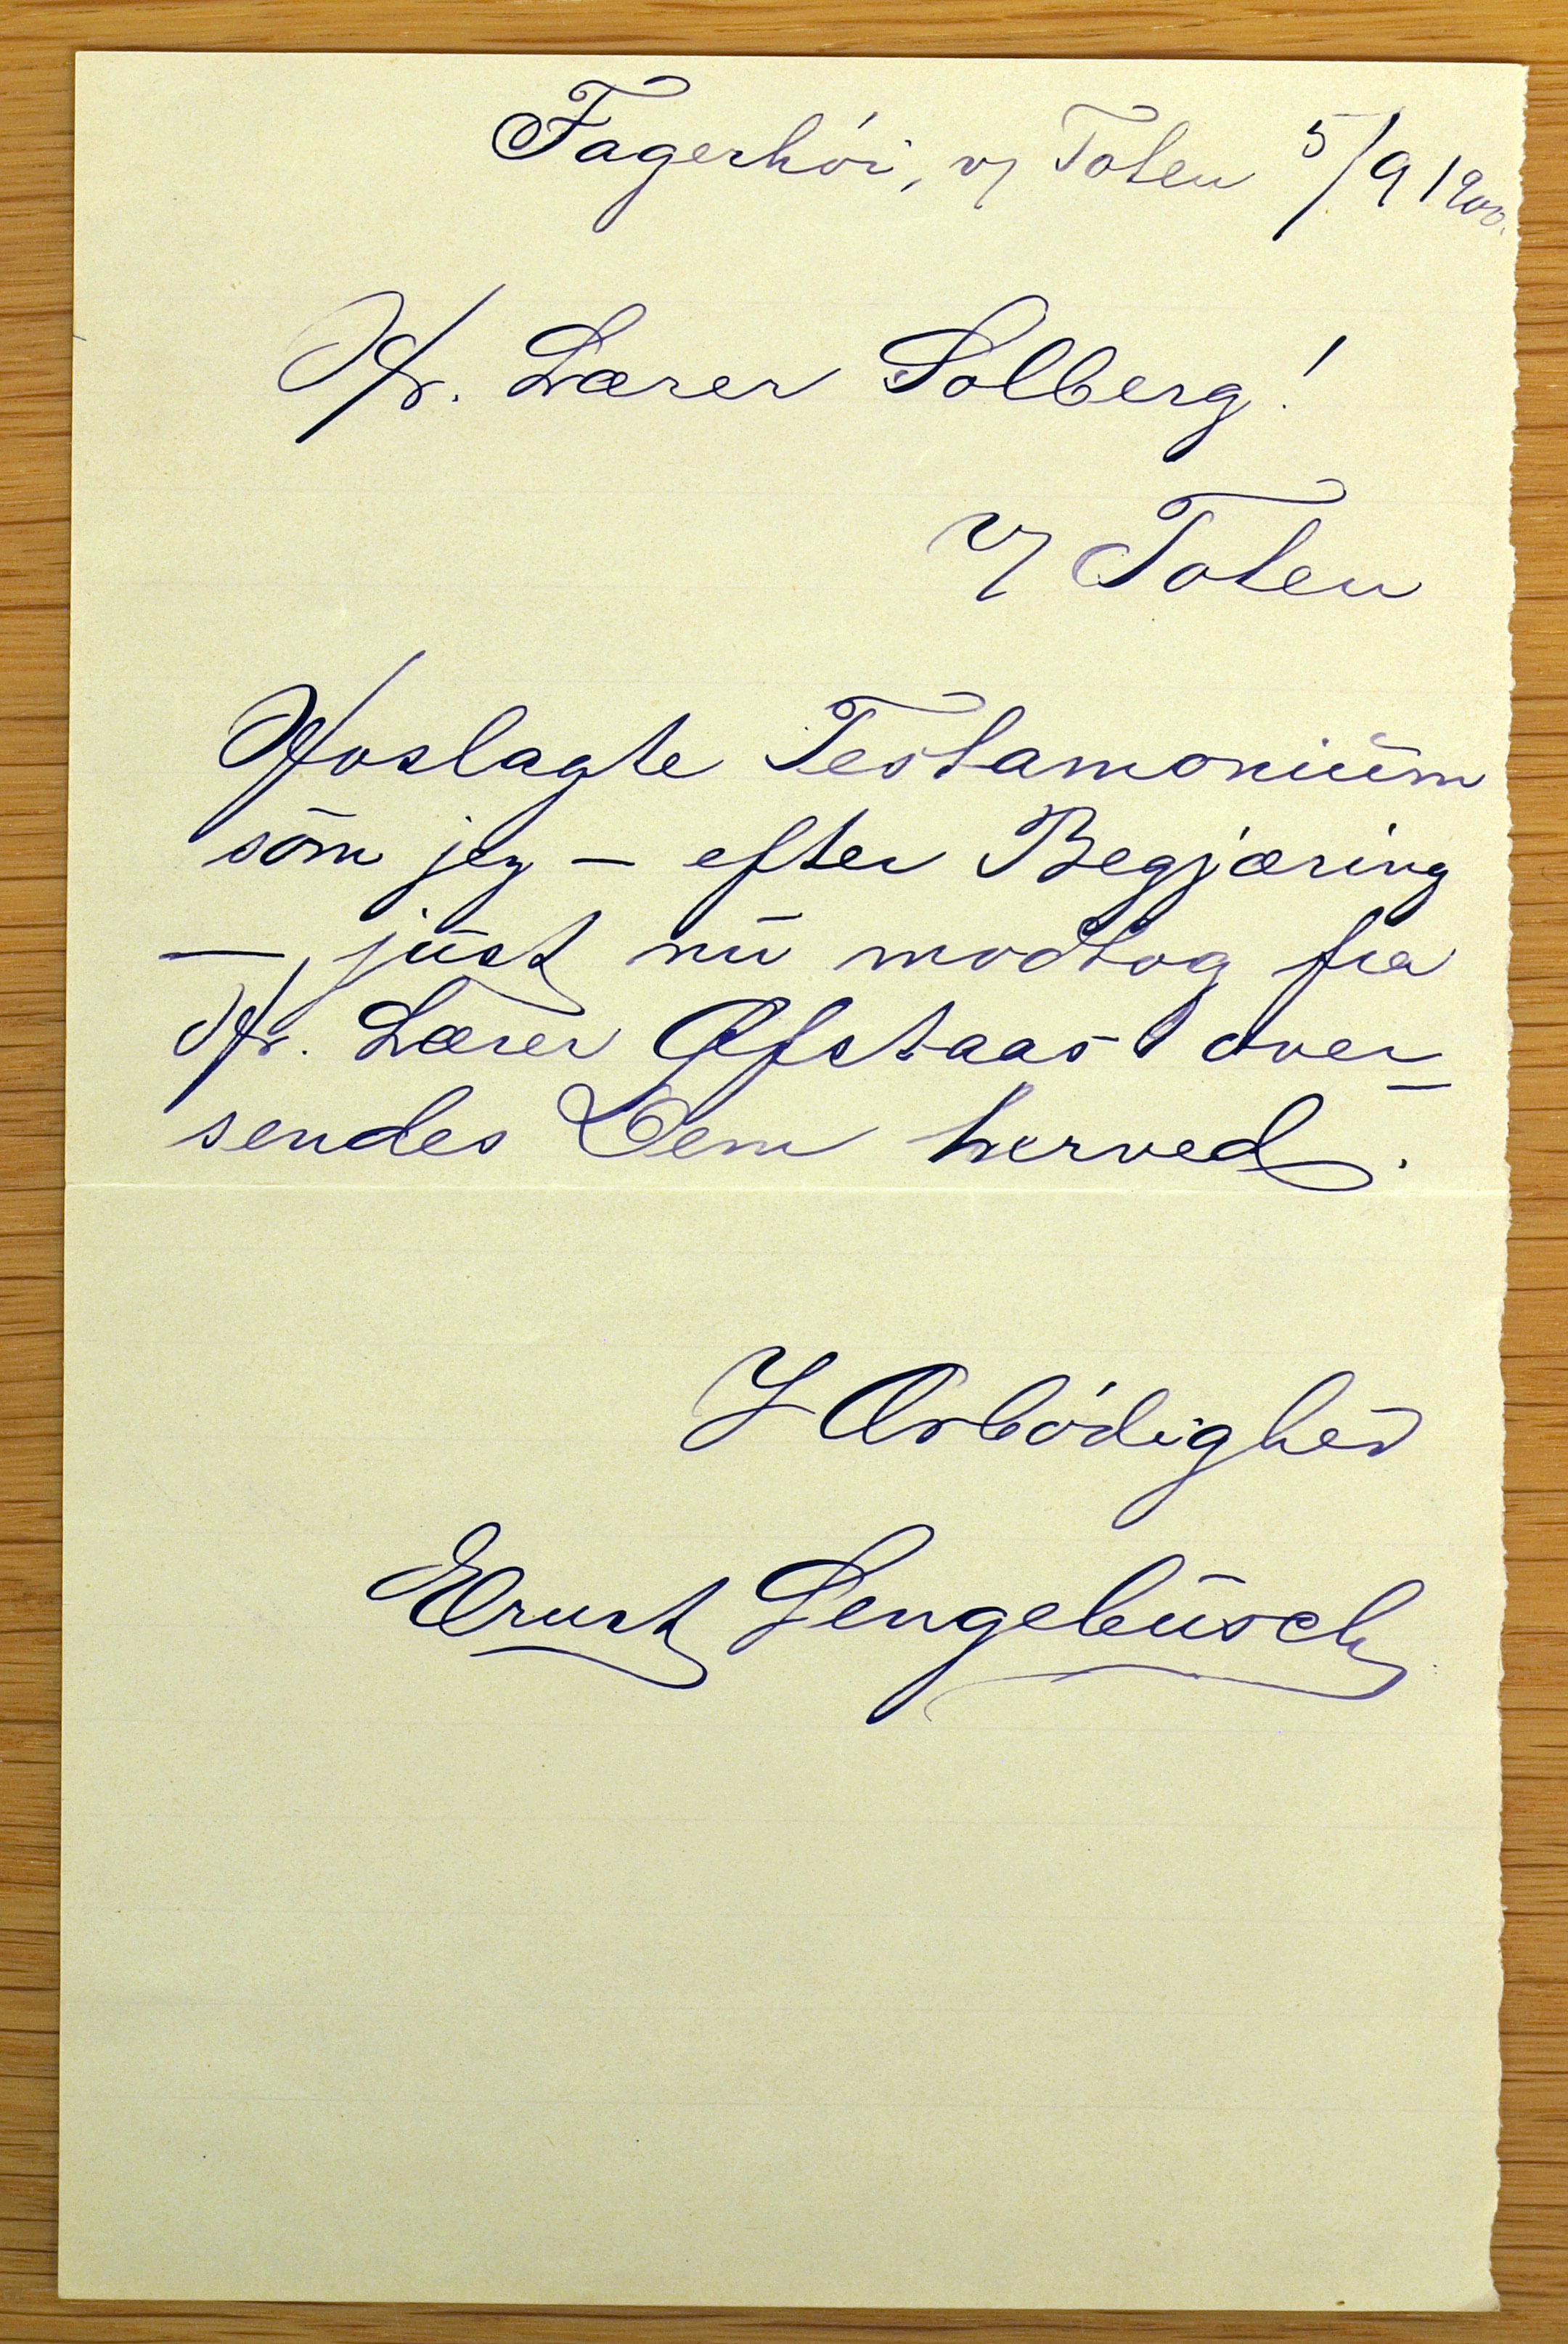 Fagerhói, v/ Toten 5/9 1900.
Hr. Lærer Solberg!
v/ Toten
Hoslagte Testamonium
som jeg — efter Begjæring
— just nu modtog fra
Hr. Lærer Øfstaas over-
sendes Dem herved.
I Ærbódighed
Ernst Lengebusch